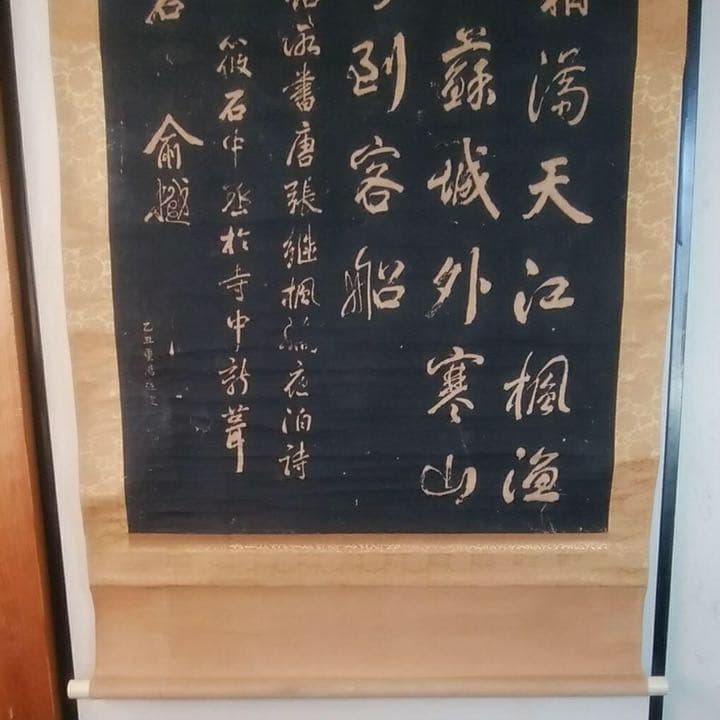 滿天江楓漁
蘇城外寒山
到客船
所書唐張繼楓橋夜泊詩
筱石中丞於寺中新葺
石
俞樾
乙丑重